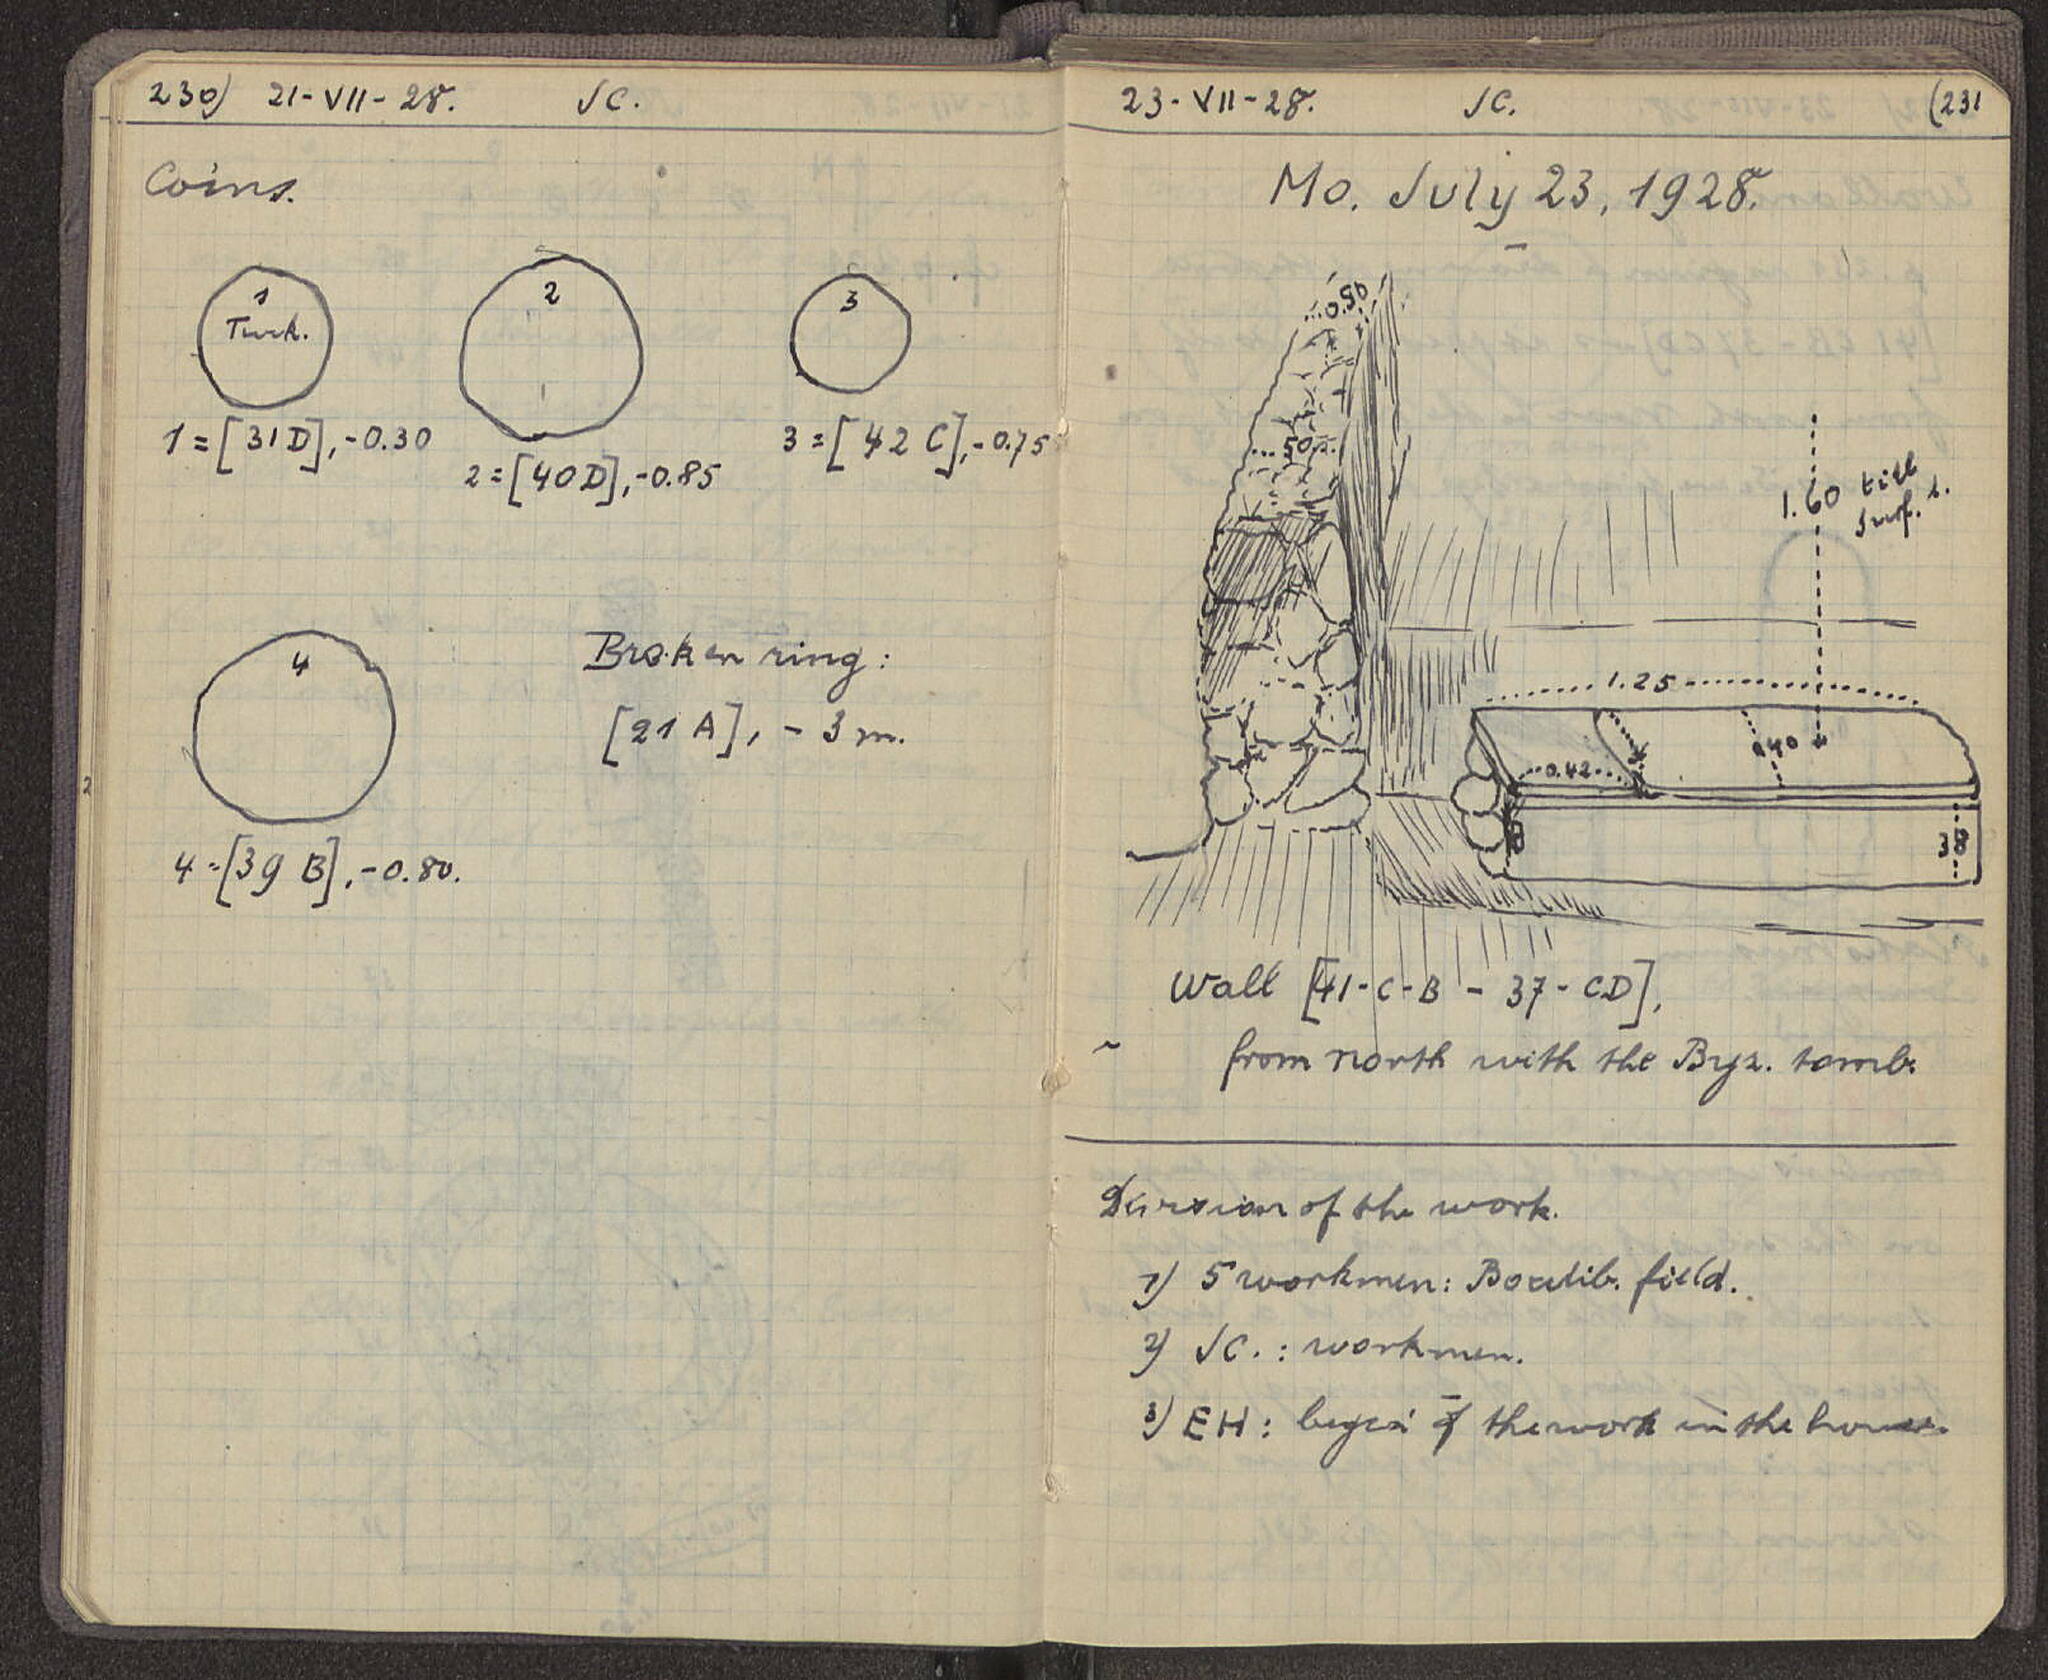 230) 21-VII-28. JC.
Coins.
1
Turk.
2
3
1 = [31 D], -0.30
2 = [40 D], -0.85
3 = [42 C], -0.75
4
Broken ring:
[21 A], - 3 m.
4 = [39 B], -0.80.
23-VII-28. JC. (231
Mo. July 23, 1928.
0.50
50
1.60 till
surf.
1.25
0.42
0.40
38
Wall [41-C-B - 37-CD],
from north with the Byz. tomb.
Division of the work.
1) 5 workmen: field.
2) JC.: workmen.
3) EH: of the work in the house.